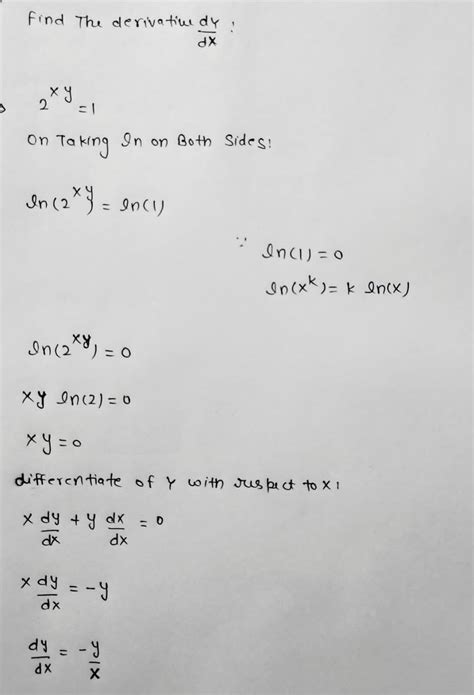 Find The derivative dy/dx :
2^xy = 1
On Taking ln on Both Sides:
ln(2^xy) = ln(1)
∵ ln(1) = 0
ln(x^k) = k ln(x)
ln(2^xy) = 0
xy ln(2) = 0
xy = 0
differentiate of y with respect to x:
x dy/dx + y dx/dx = 0
x dy/dx = -y
dy/dx = -y/x